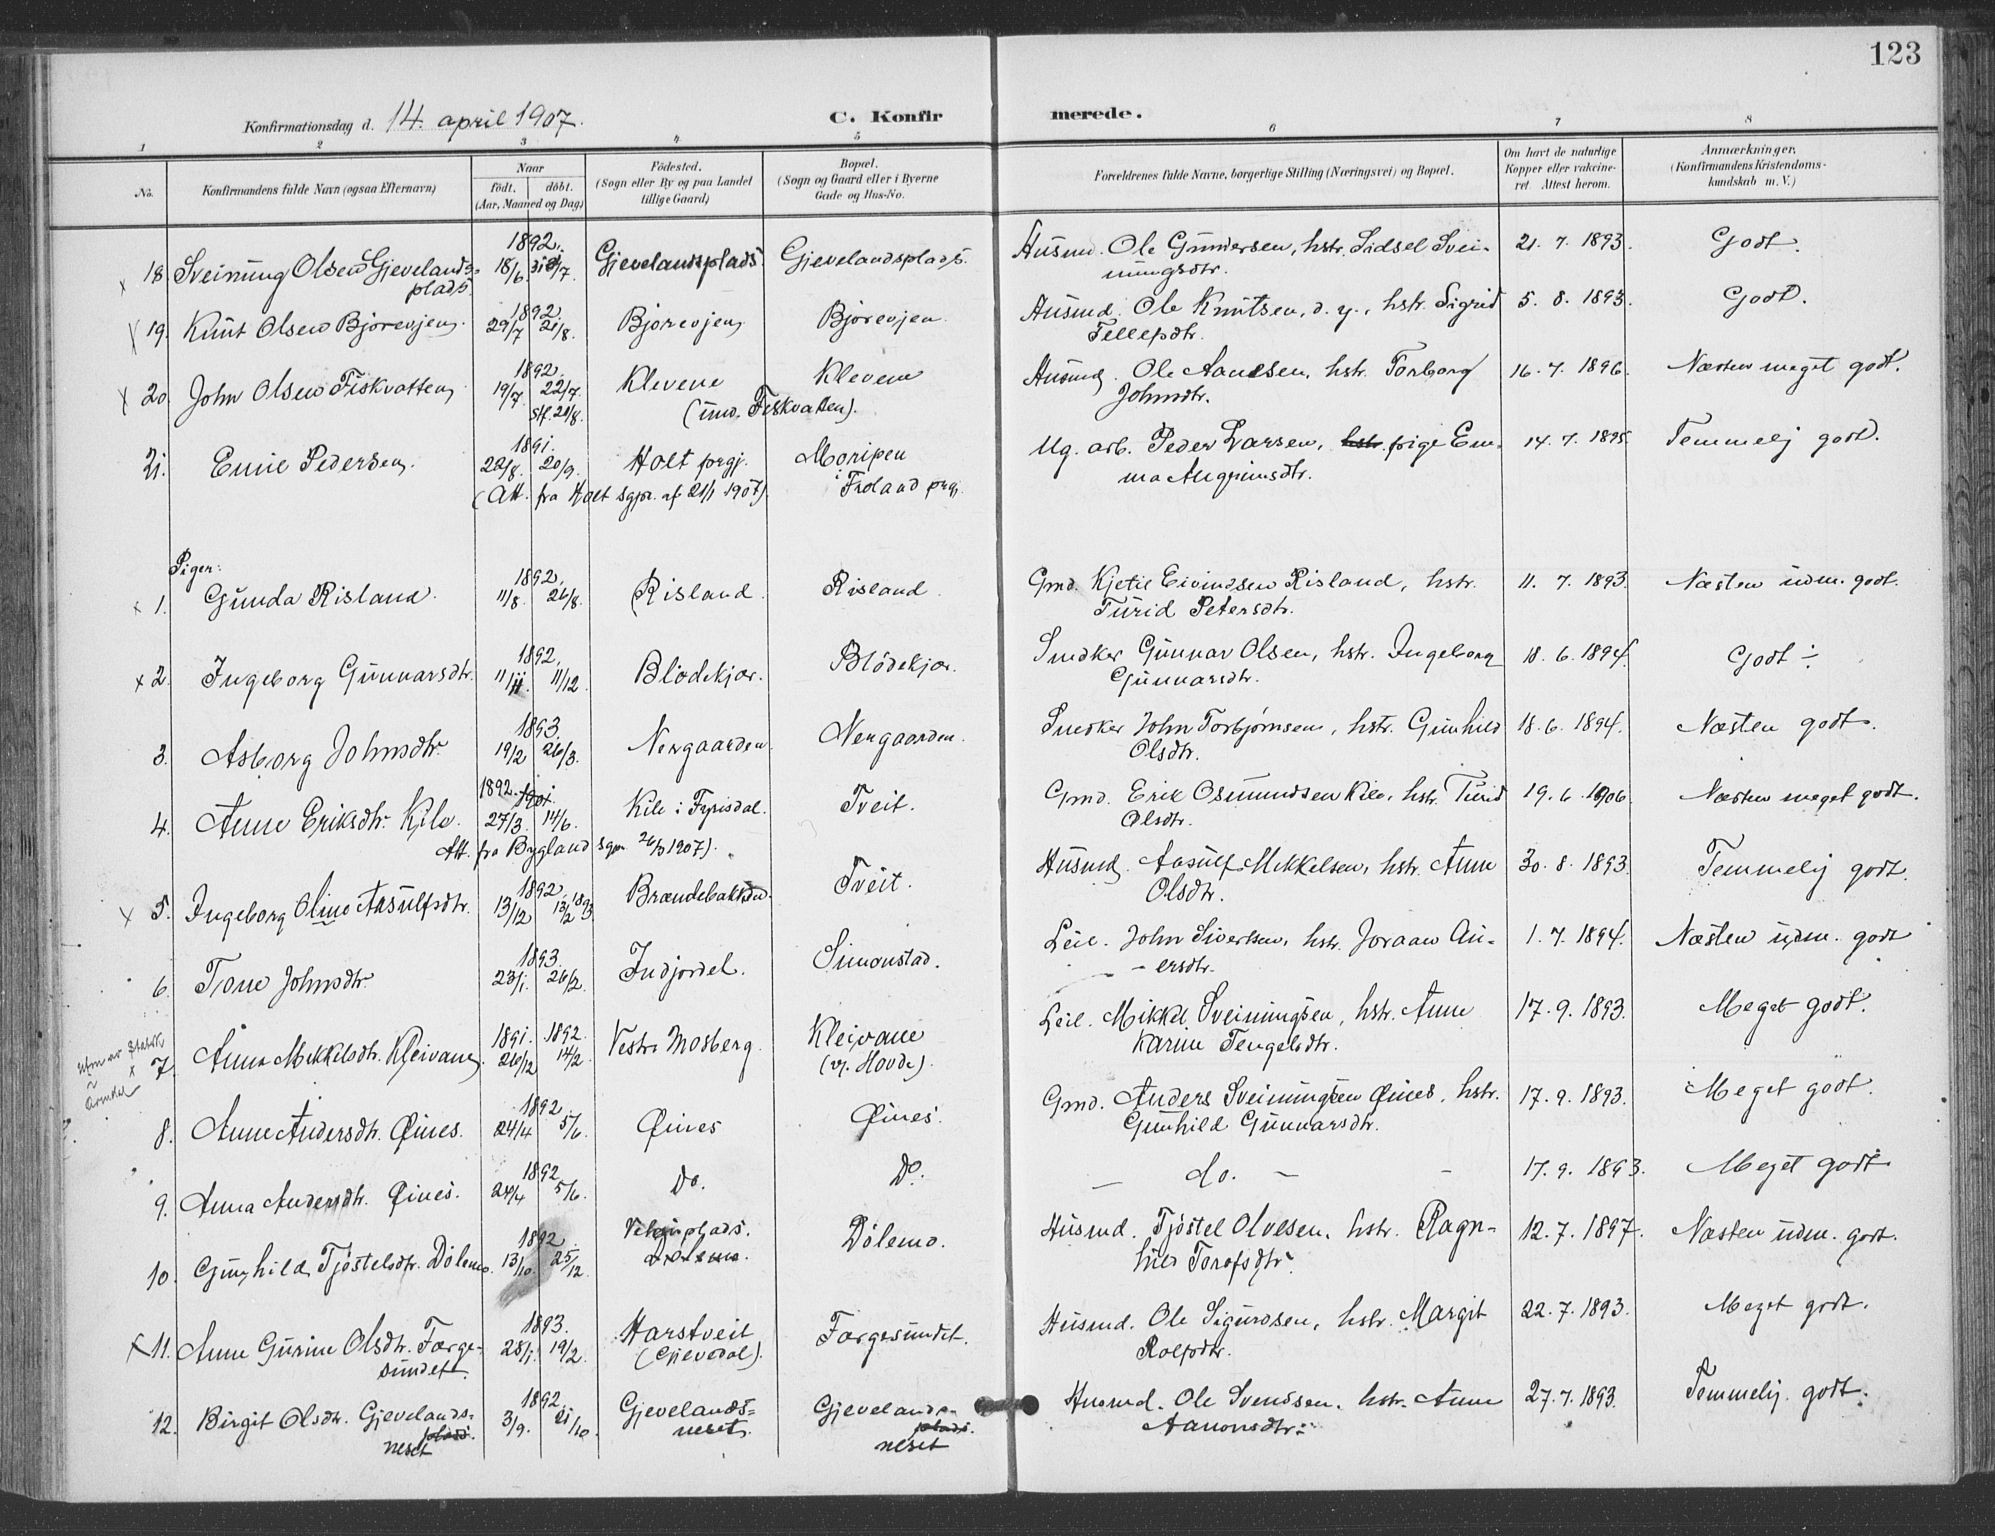 123
Konfirmationsdag d. 14. april 1907.
C. Konfir
merede.
1 2 3 4 5 6 7 8
No.
Konfirmandens fulde Navn (ogsaa Efternavn)
Naar
født. døbt.
(Aar, Maaned og Dag)
Fødested.
(Sogn eller By og paa Landet
tillige Gaard)
Bopæl.
(Sogn og Gaard eller i Byerne
Gade og Hus-No.
Forældrenes fulde Navne, borgerlige Stilling (Næringsvei) og Bopæl.
Om havt de naturlige
Kopper eller vakcine-
ret Attest herom.
Anmærkninger.
(Konfirmandens Kristendoms-
kundskab m. V.)
1892.
x 18 Sveinung Olsen Gjevelands- 18/6 /7. Gjevelandsplads. Gjevelandsplads. Husmd. Ole Gundersen, hstr. Sidsel Svei- 21. 7. 1893. Godt.
plads. nungsdtr.
1892.
x 19. Knut Olsen Bjorevjen. 29/7 21/8. Bjorevjen Bjorevjen. Husmd. Ole Knutsen, d. y., hstr. Sigrid 5. 8. 1893. Godt.
Tellefsdtr.
1892.
x 20. John Olsen Fiskvatten 19/7 22/7. Klevene Klevene Husmd. Ole Aanesen, hstr. Torborg 16. 7. 1896. Næsten meget godt.
st. 21/8. (und. Fiskvatten). Johnsdtr.
1891.
21. Emil Pedersen. 22/8. 20/9. Holt prgj. Moripen Ug. arb. Peder Larsen, hstr. pige Em- 14. 7. 1895. Temmelig godt.
(Att. fra Holt sgpr. af 21/1 1907) i Froland prgj. ma Angrimsdtr.
Piger:
1892.
x 1. Gunda Risland. 11/8. 21/8. Risland. Risland. Gmd. Kjetil Eivindsen Risland, hstr. 11. 7. 1893. Næsten udm. godt.
Turid Petersdtr.
1892.
x 2. Ingeborg Gunnarsdtr. 11/11. 11/12. Blødekjær. Blødekjær. Snedker Gunnar Olsen, hstr. Ingeborg 18. 6. 1894. Godt ÷
Gunnarsdtr.
1893.
3. Asborg Johnsdtr. 19/2 26/3. Nergaarden. Nergaarden. Snedker John Torbjørnsen, hstr. Gunhild 18. 6. 1894. Næsten godt.
Olsdtr.
1892.
4. Anne Eriksdtr. Kile. 27/3. 14/6. Kile i Fyrisdal. Tveit. Gmd. Erik Osmundsen Kile, hstr. Turid 19. 6. 1906. Næsten meget godt.
Att. fra Bygland sgpr. 1907). Olsdtr.
1892.
x 5. Ingeborg Oline Aasulfsdtr. 13/12 13/2 1893. Brændebakken. Tveit. Husmd. Aasulf Mikkelsen, hstr. Anne 30. 8. 1893. Temmelig godt.
Olsdtr.
1893.
6. Tone Johnsdtr. 23/1. 26/2. Indjordel. Simonstad. Leil. John Sivertsen, hstr. Joraan An- 1. 7. 1894. Næsten udm. godt
- ersdtr.
1891. 1892.
x 7. Anna Mikkelsdtr. Kleivane 26/12 14/2. Vestre Mosberg. Kleivane Leil. Mikkel Sveinungsen, hstr. Anne 17. 9. 1893. Meget godt.
(v. Hovde). Karine Tengelsdtr.
1892.
8. Anne Andersdtr. Øines. 24/4 5/6. Øines Øines. Gmd. Anders Sveinungsen Øines, hstr. 17. 9. 1893. Meget godt.
Gunhild Gunnarsdtr.
1892
9. Anna Andersdtr. Øines. 24/4 5/6. Do. Do. — do. — - 17. 9. 1893. Meget godt
1892.
10. Gunhild Tjøstelsdtr. Dølemo. 13/10. 25/12. Dølemo. Dølemo. Husmd. Tjøstel Olvesen, hstr. Ragn- 12. 7. 1897. Næsten udm. godt.
hild Torofsdtr.
1893.
x 11. Anne Gurine Olsdtr. Færge- 28/1. 19/2. Harstveit Færgesundet. Husmd. Ole Sigurdsen, hstr. Margit 22. 7. 1893. Meget godt.
sundet. (Gjevedal). Rolfsdtr.
1892
12. Birgit Olsdtr. Gjevelands- 3/9. 21/10. Gjevelands- Gjevelands- Husmd. Ole Svendsen, hstr. Anne 27. 7. 1893. Temmelig godt.
plads. neset. plads. Aanonsdtr.
neset neset